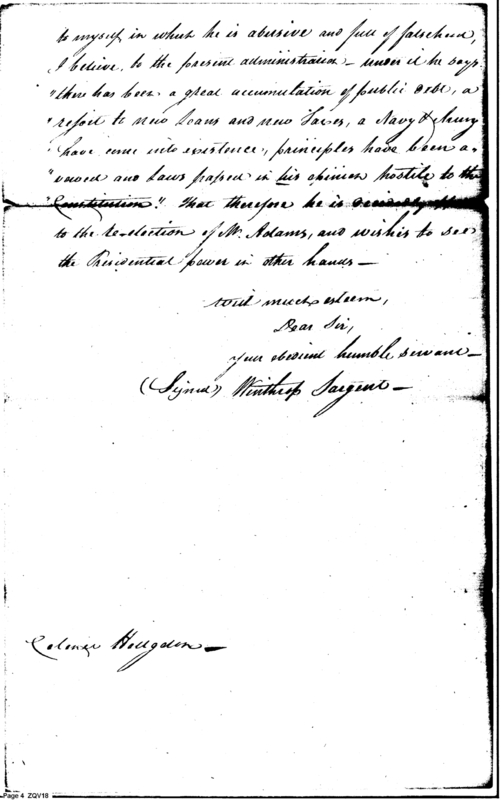 to myself in which he is abusive and full of falsehood,
I believe, to the present administration – under it he says.
"there has been a great accumulation of public debt, a
"resort to new Loans and new Taxes, a Navy & Army
"have come into existence, principles have been a-
"vowed and Laws passed in his opinion hostile to the
"Constitution." that therefore he is decidedly
to the re-election of Mr. Adams, and wishes to see
the Presidential power in other hands –
With much esteem,
Dear Sir,
your obedient humble servant –
(Signed) Winthrop Sargent –
Colonel Hodgdon –
Page 4 ZQV18